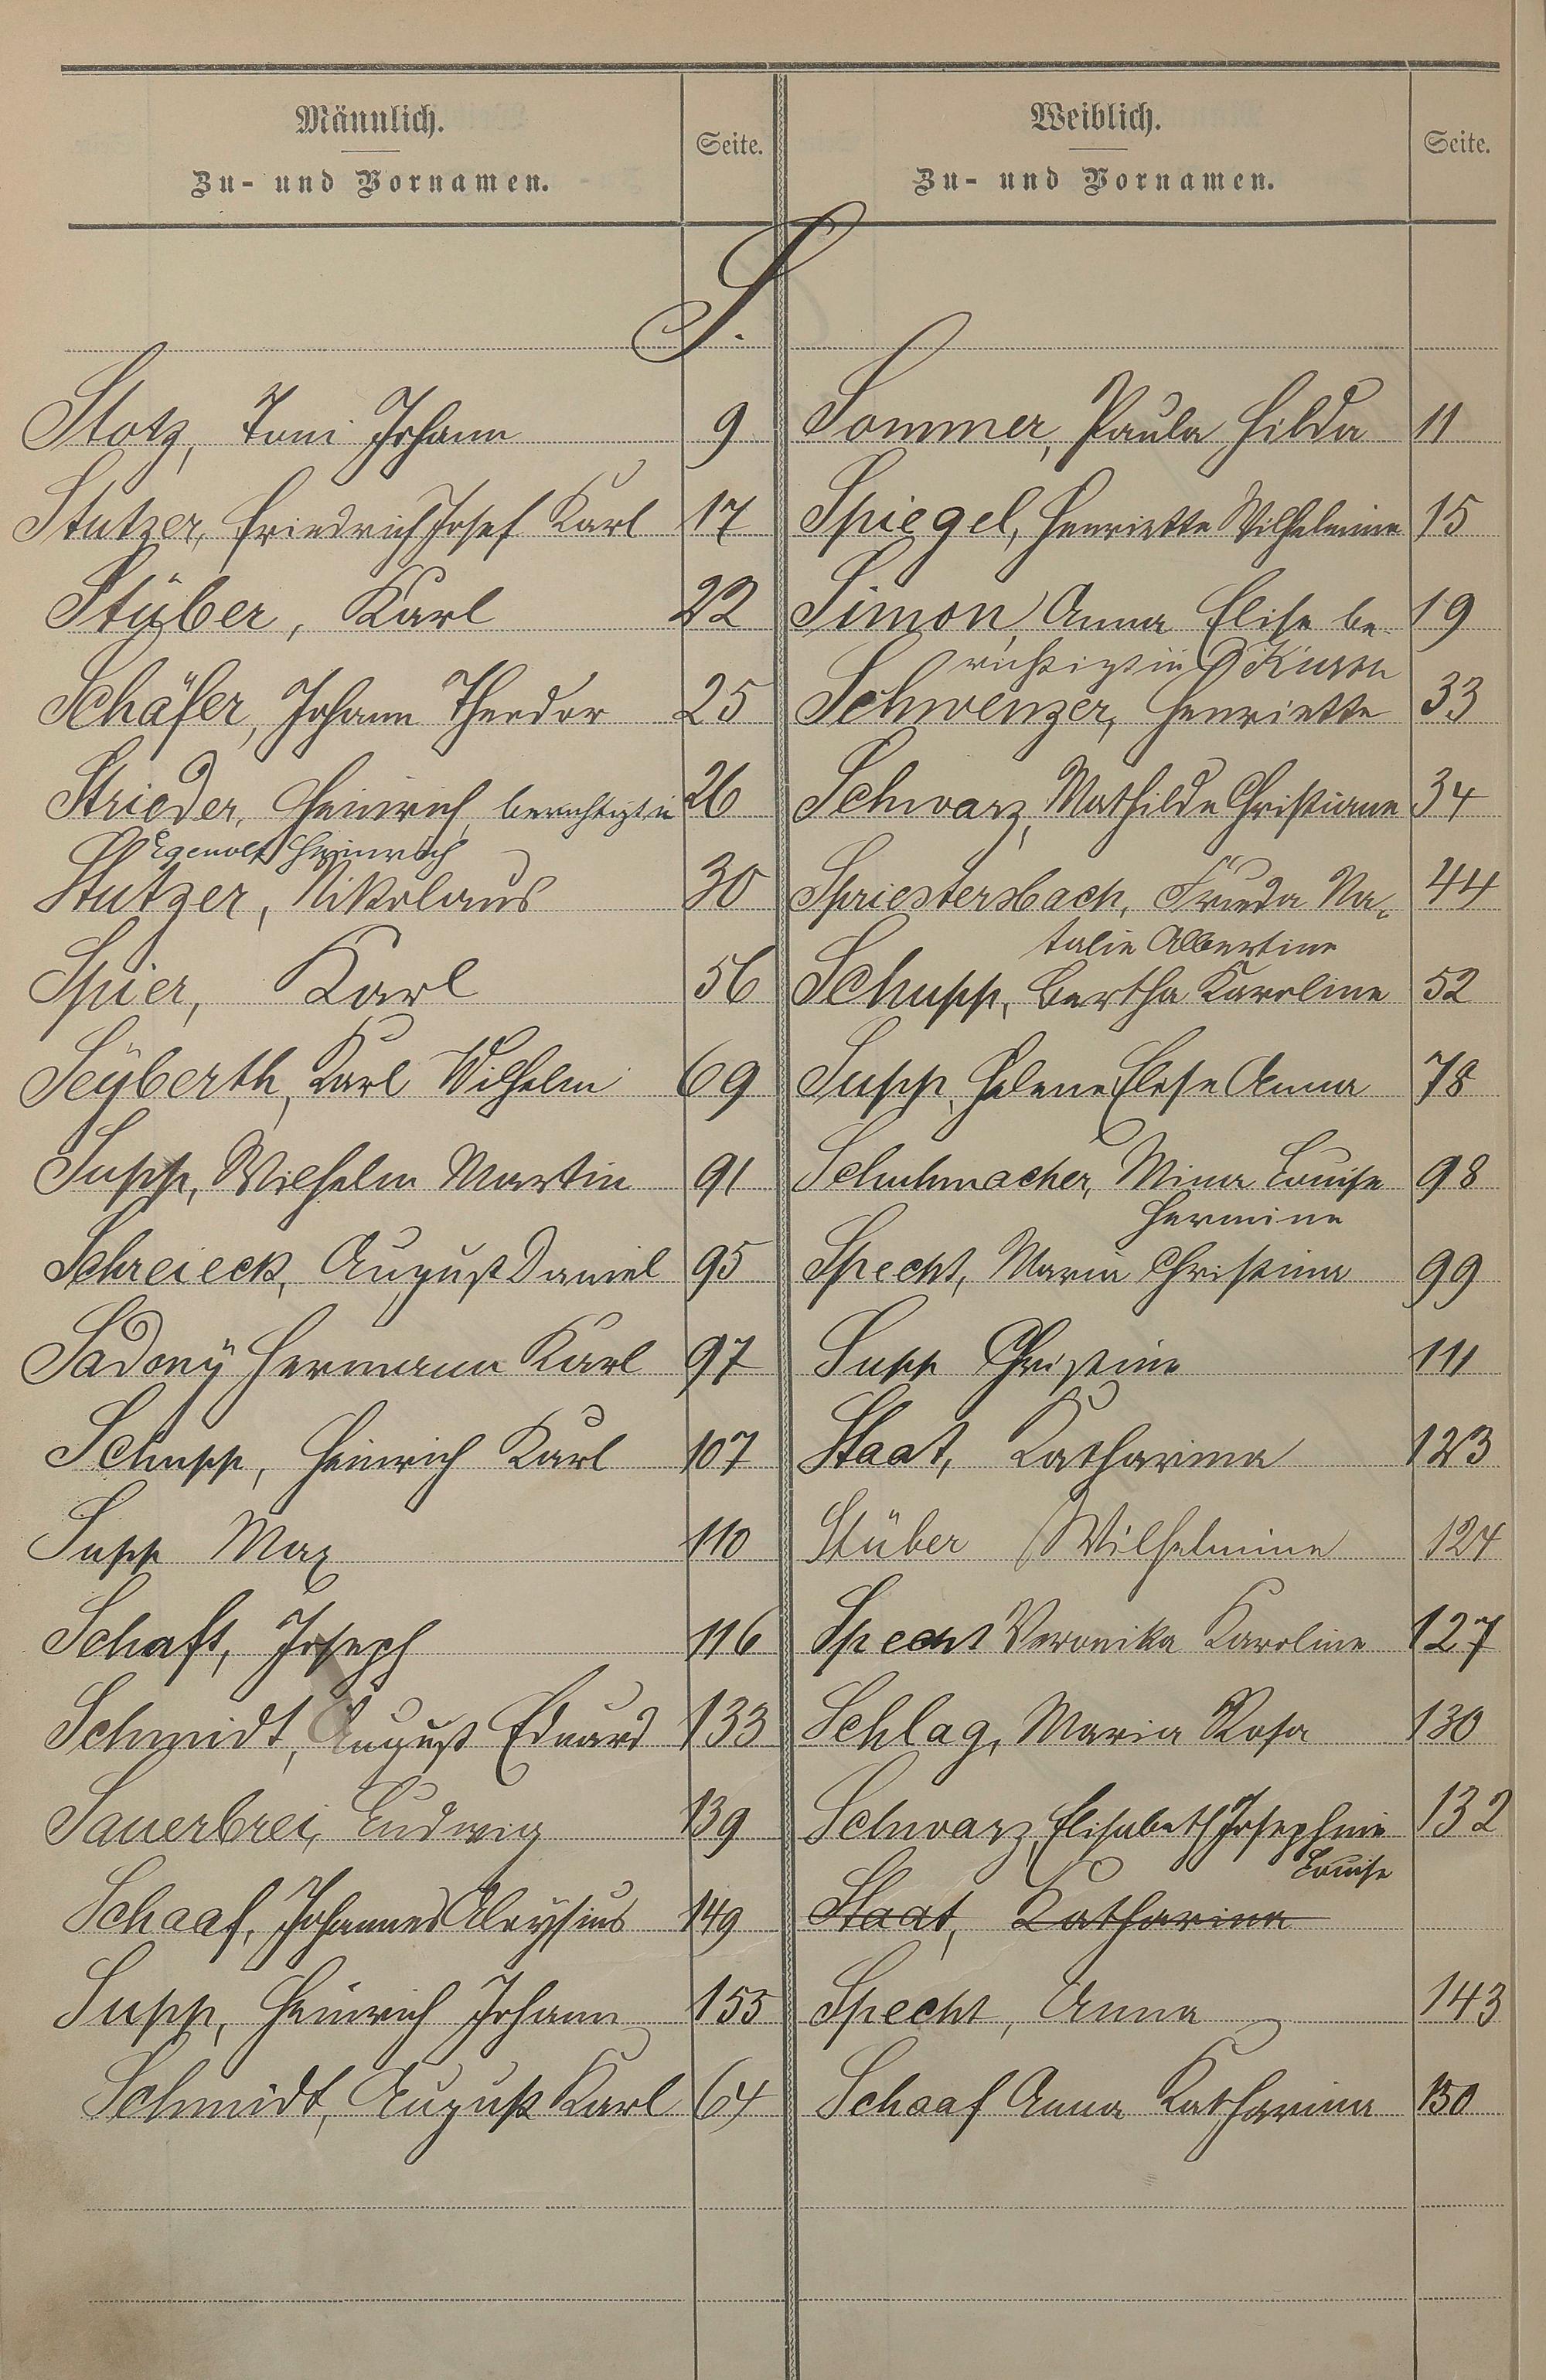 Männlich.
Zu- und Vornamen.
Seite.
Weiblich.
Zu- und Vornamen.
Seite.
S.
Stotz, Toni Johann 9
Stutzer, Friedrich Josef Karl 17
Stüber, Karl 22
Schäfer, Johann Theodor 25
Strieder, Heinrich, berichtigt in 26
Egenolf Heinrich
Stutzer, Nikolaus 30
Spier, Karl 56
Seÿberth, Karl Wilhelm 69
Supp, Wilhelm Martin 91
Schreieck, August Daniel 95
Sadonÿ Hermann Karl 97
Schupp, Heinrich Karl 107
Supp Max 110
Schaft, Joseph 116
Schmidt, August Eduard 133
Sauerbrei, Ludwig 139
Schaaf, Johannes Aloysius 149
Supp, Heinrich Johann 155
Schmidt, August Karl 64
Sommer, Paula Hilda 11
Spiegel, Henriette Wilhelmine 15
Simon, Anna Elise be- 19
richtigt in
Schwenzer, Henriette 33
Schwarz, Mathilde Christiane 34
Spriestersbach, Frieda Na- 44
talie Albertine
Schupp, Bertha Karoline 52
Supp, Helene Elese Anna 78
Schuhmacher, Mina Louise 98
Hermine
Specht, Maria Christina 99
Supp Christine 111
Staat, Katharina 123
Stüber Wilhelmine 124
Specht Veronika Karoline 127
Schlag, Maria Rosa 130
Schwarz, Elisabeth Josephine 132
Louise
Staat, Katharina
Specht, Anna 143
Schaaf Anna Katharina 150